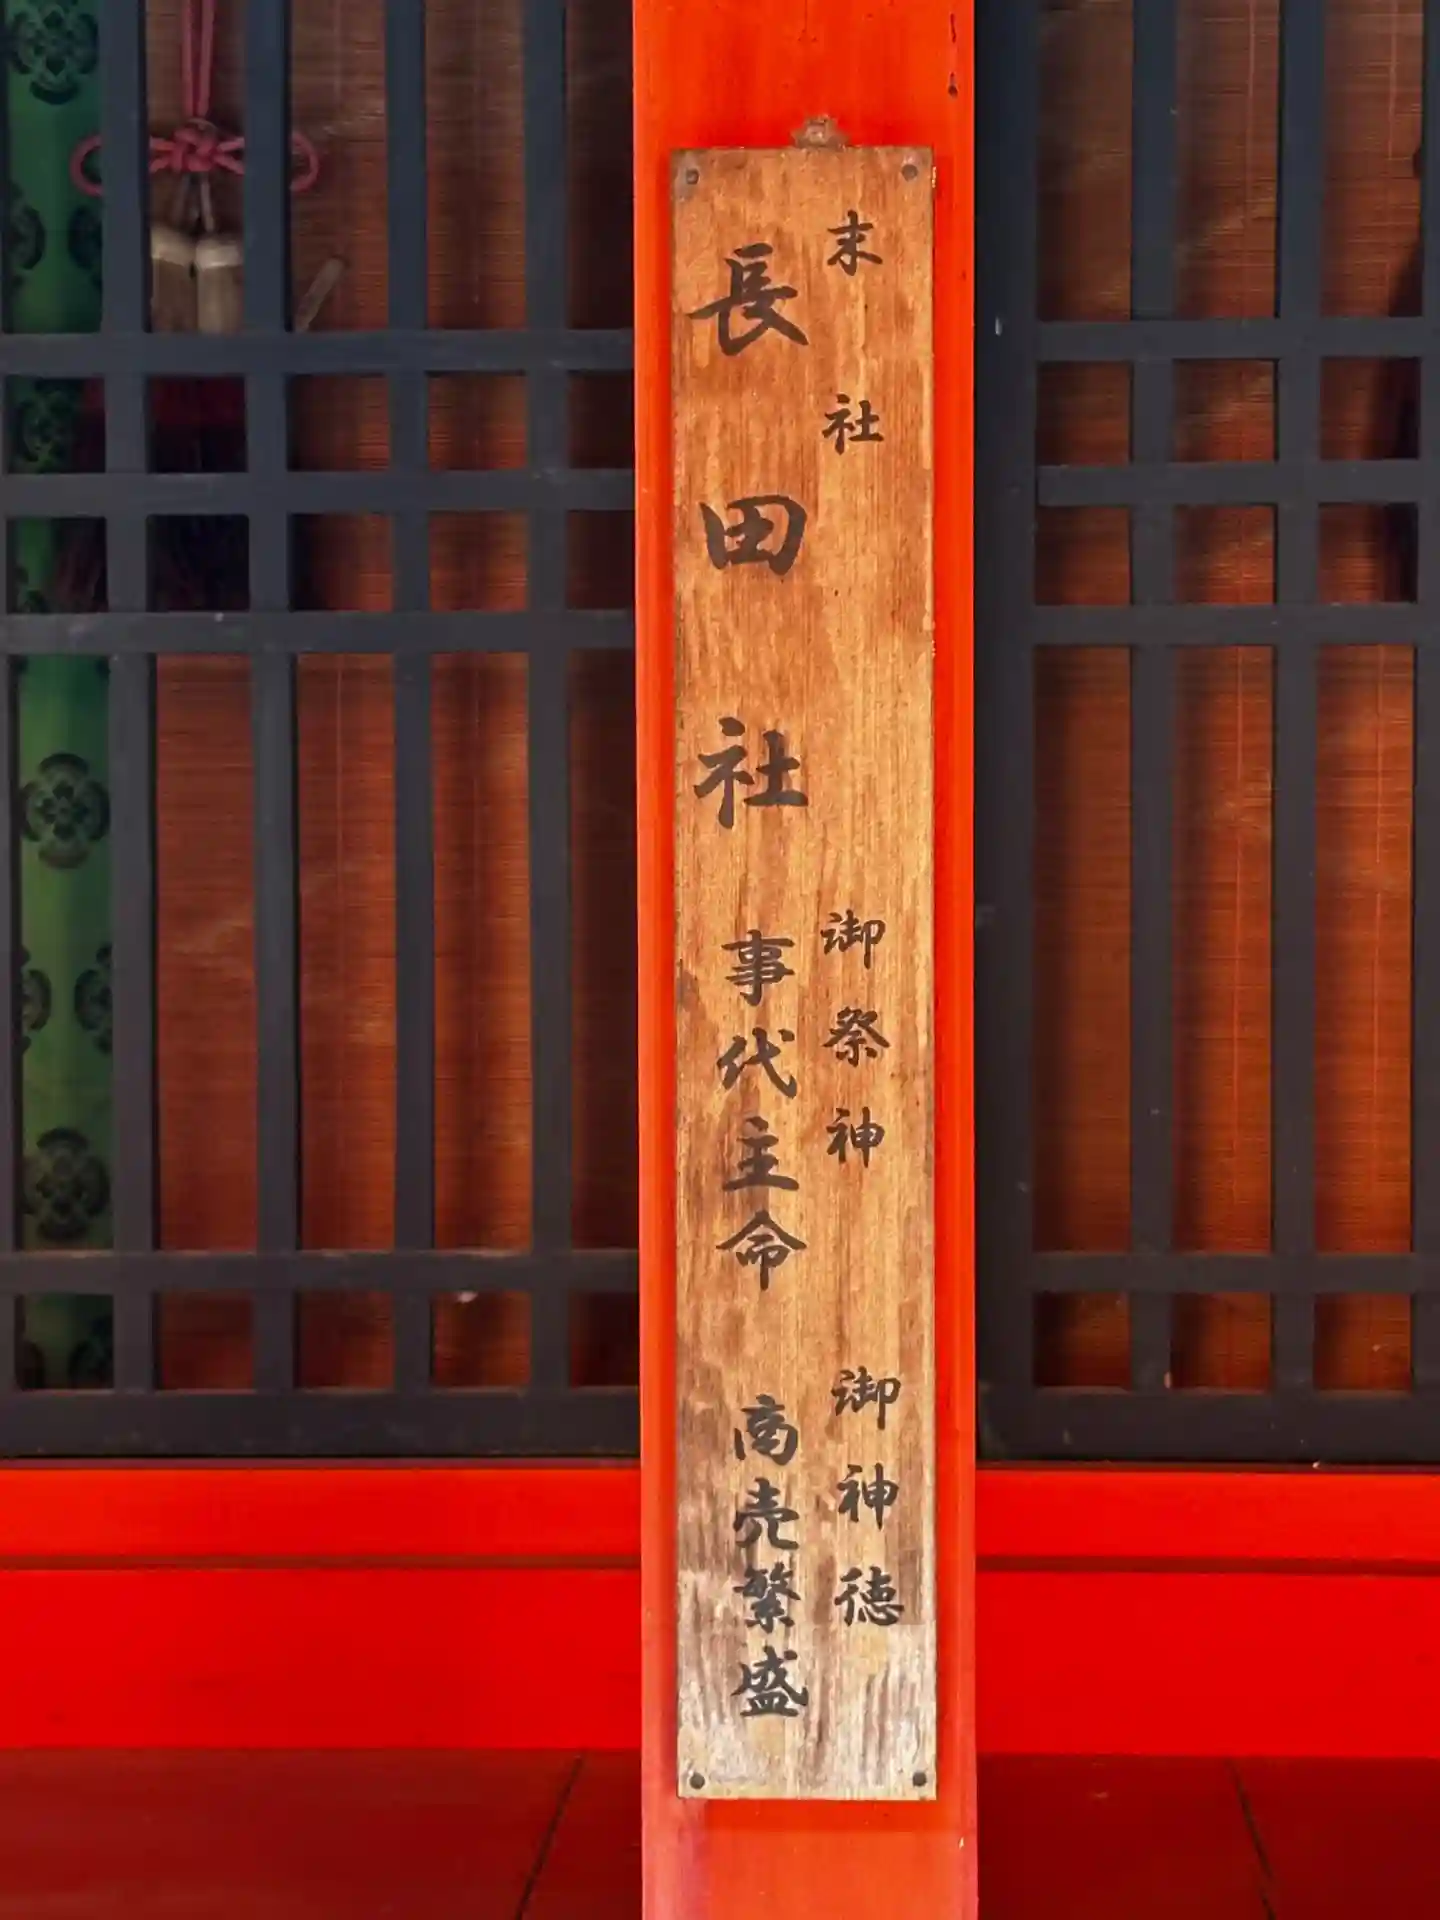 末社 御祭神 御神徳
長田社 事代主命 商売繁盛